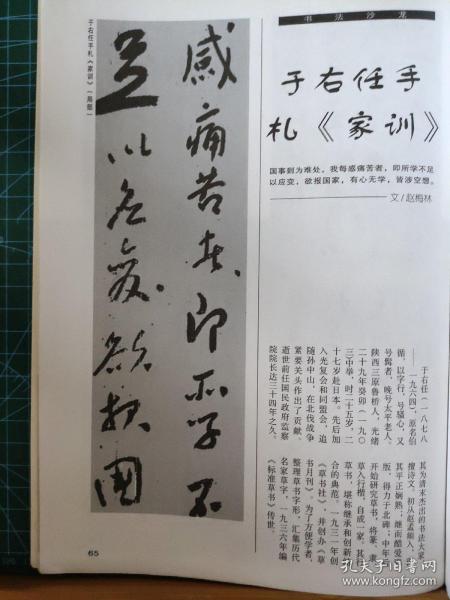 书法沙龙
于右任手
札《家训》
国事到为难处，我每感痛苦者，即所学不足
以应变，欲报国家，有心无学，皆涉空想。
——文/赵梅林
于右任手札《家训》（局部）
感痛苦者即所学不
足以应变欲报国
于右任（一八七八
——一九六四），原名伯
循，以字行，号骚心，又
号髯者，晚号太平老人。
陕西三原鲁桥人，光绪
二十九年癸卯（一九〇
三）中举，时二十五岁，二
十七岁赴日本，先后加
入光复会和同盟会，追
随孙中山，在北伐战争
紧要关头作出了贡献，
逝世前任国民政府监察
院院长达三十四年之久。
其为清末杰出的书法大家，
擅诗文，初从赵孟頫入，
其平正娴熟；继而酷爱
版，得力于北碑；中年
开始研究草书，将篆、隶
草入行楷，自成一家，其行
草书，堪称继承和创新
合的典范。一九三一年创
《草书社》，并创办《草
书月刊》。为了方便学者，
整理草书字形，汇集历代
名家草字，一九三六年编
《标准草书》传世。
65
孔夫子旧书网